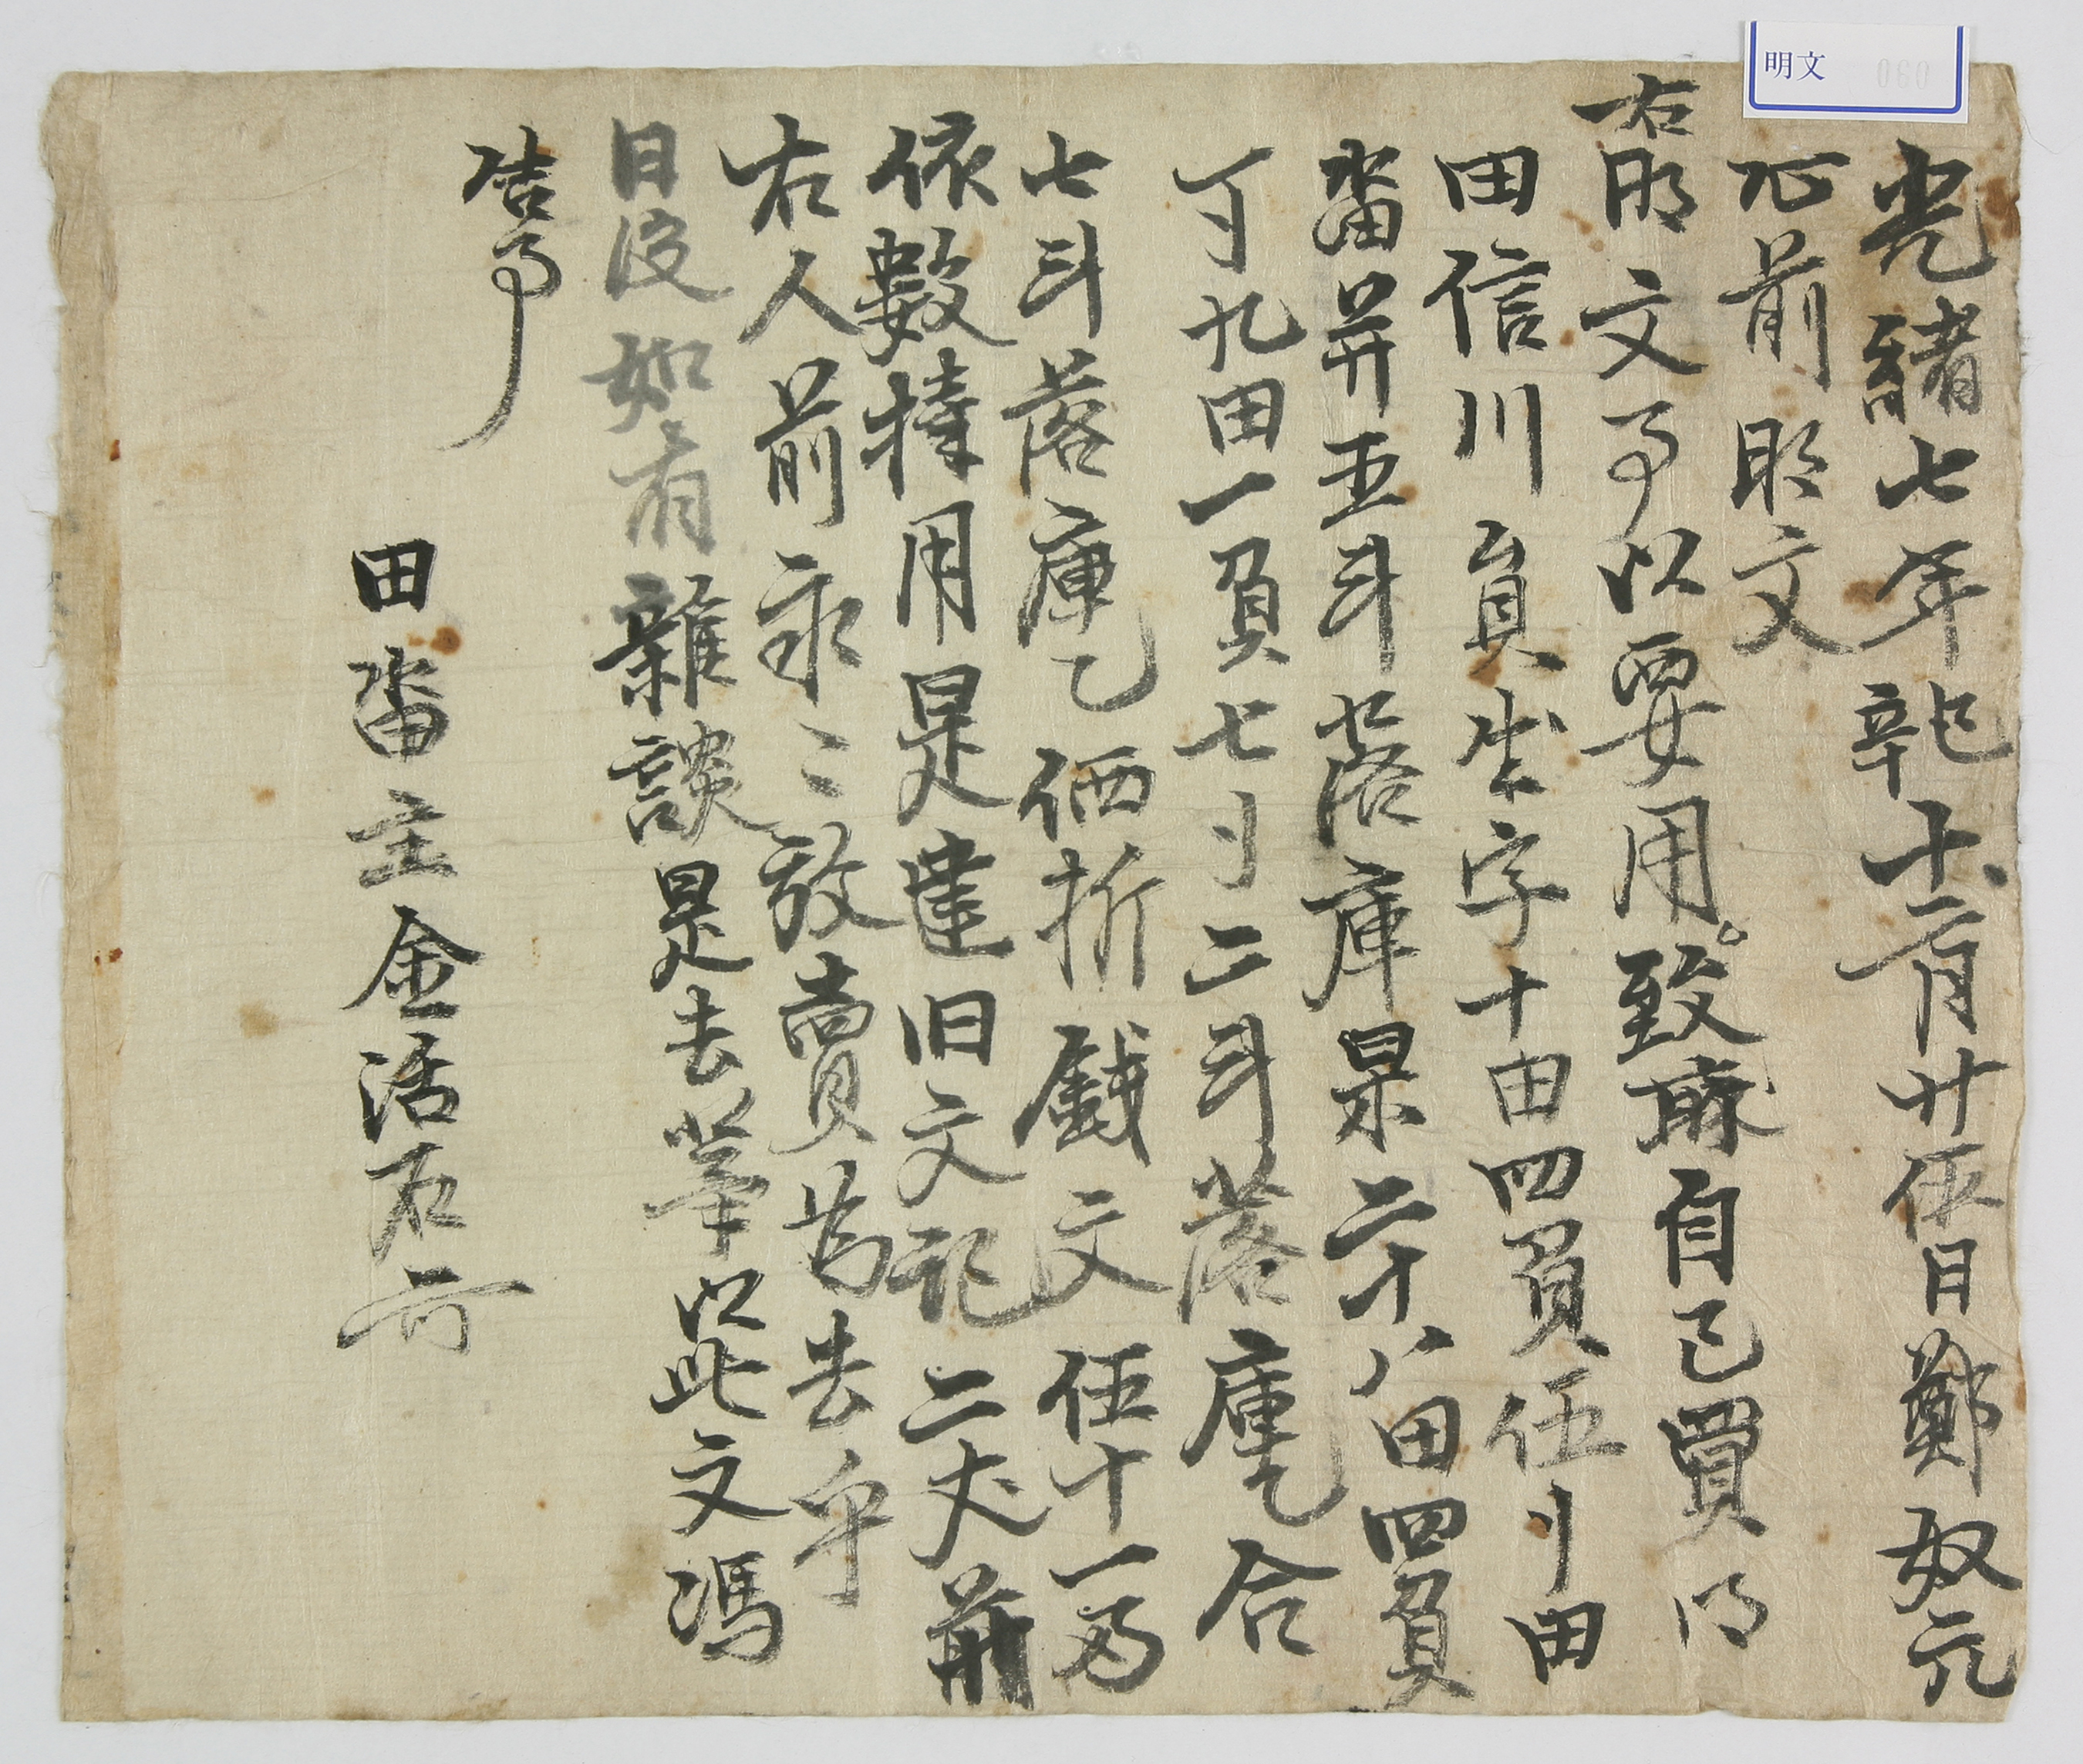 明文 060
光緒七年辛巳十二月廿伍日鄭奴元
心前明文
右明文事以要用致爲自己買得
田信川員生字十田四負伍卜田
畓幷五斗落庫果二十八田四負
丁九田一負七卜二斗落庫乙合
七斗落庫乙価折戔文伍十一兩
依數捧用是遣旧文記二丈幷
右人前永〃放賣爲去乎
日後如有雜談是去等以此文馮
告事
田畓主金活石